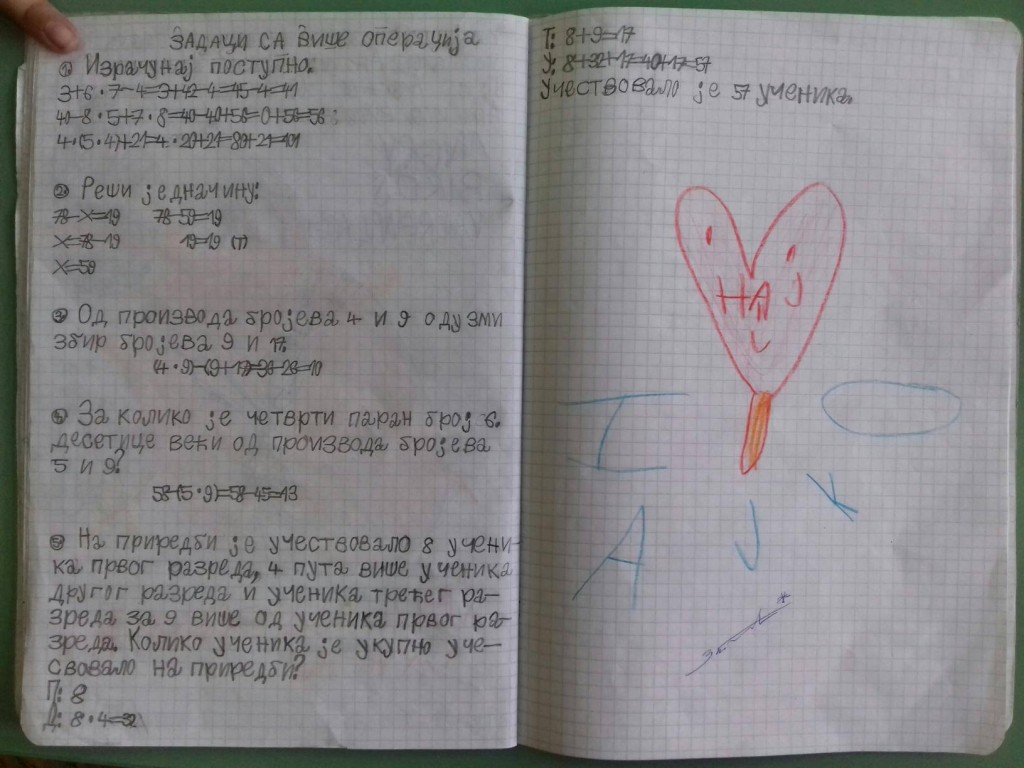 ЗАДАЦИ СА ВИШЕ ОПЕРАЦИЈА
1. Израчунај поступно.
3+6·7-4=3+42-4=45-4=41
40-8·5+7·8=40-40+56=0+56=56;
4·(5·4)+21=4·20+21=80+21=101
2. Реши једначину:
78-X=19 78-59=19
X=78-19 19=19 (Т)
X=59
3. Од производа бројева 4 и 9 одузми
збир бројева 9 и 17.
(4·9)-(9+17)=36-26=10
4. За колико је четврти паран број 6.
десетице већи од производа бројева
5 и 9?
58-(5·9)=58-45=13
5. На приредби је учествовало 8 учени-
ка првог разреда, 4 пута више ученика
другог разреда и ученика трећег ра-
зреда за 9 више од ученика првог ра-
зреда. Колико ученика је укупно уче-
свовало на приредби?
П: 8
Д: 8·4=32
Т: 8+9=17
У: 8+32+17=40+17=57
Учествовало је 57 ученика.
НАЈ